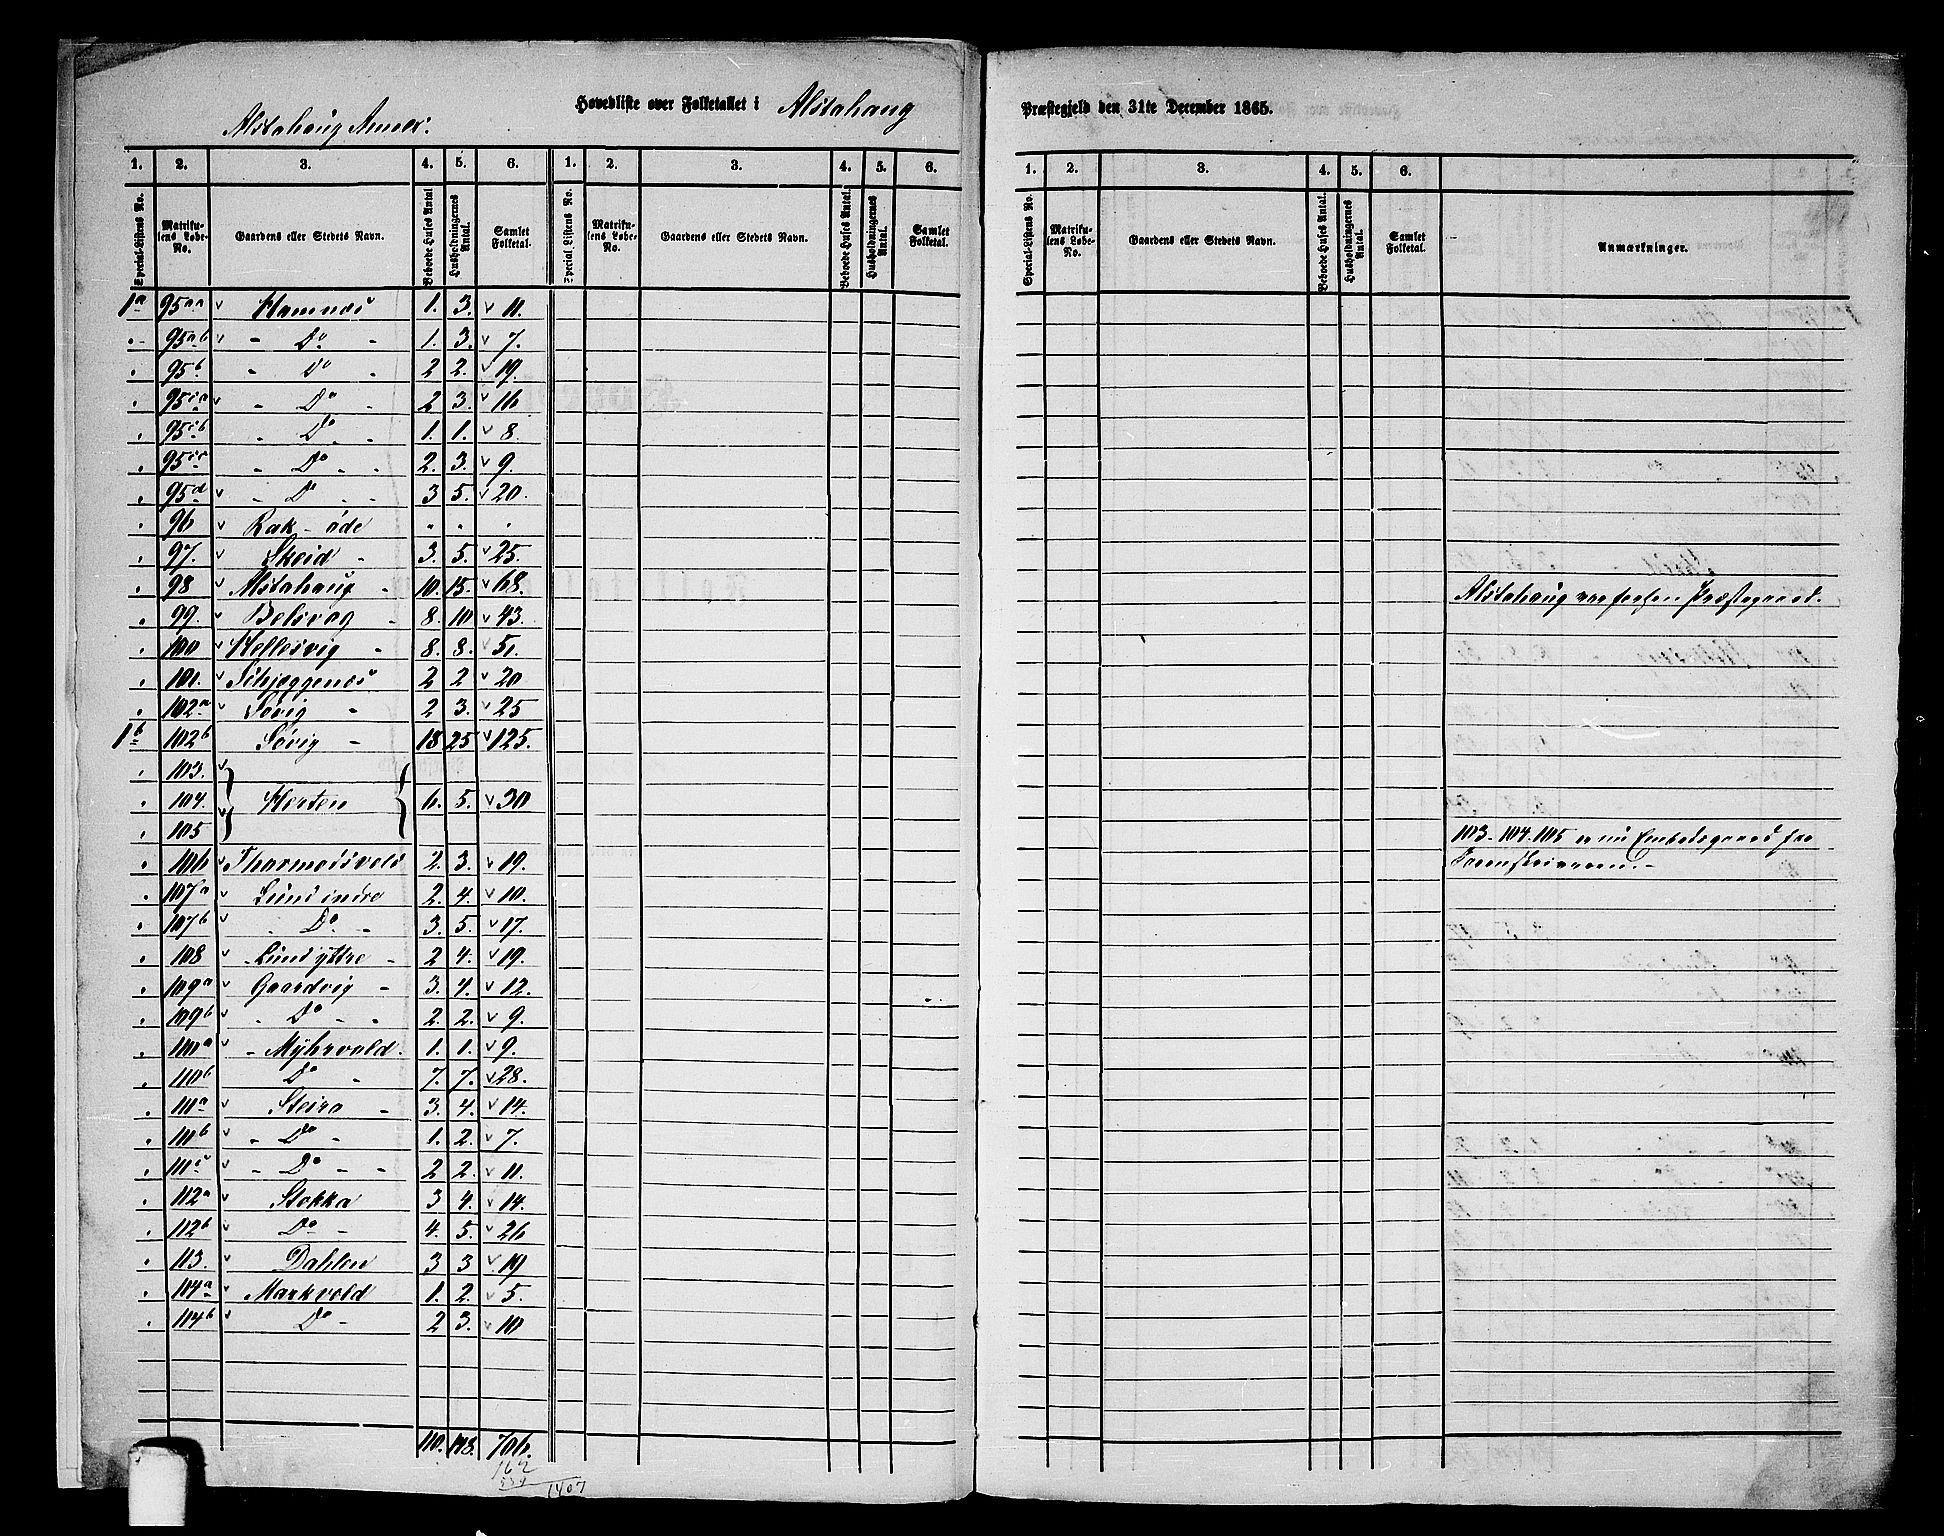 Hovedliste over Folketallet i Alstahaug Præstegjeld den 31te December 1865.
Alstahaug Annex.
1. 2. 3. 4. 5. 6. 1. 2. 3. 4. 5. 6. 1. 2. 3. 4. 5. 6.
Special-Listens No. Matrikulens Løbe-No. Gaardens eller Stedets Navn. Beboede Huses Antal. Husholdningernes Antal. Samlet Folketal. Special-Listens No. Matrikulens Løbe-No. Gaardens eller Stedets Navn. Beboede Huses Antal. Husholdningernes Antal. Samlet Folketal. Special-Listens No. Matrikulens Løbe-No. Gaardens eller Stedets Navn. Beboede Huses Antal. Husholdningernes Antal. Samlet Folketal. Anmærkninger.
1a 95aa Hamnæs 1. 3. 11.
" 95ab " Do " 1. 3. 7.
" 95b " Do " 2 2. 19.
" 95ca " Do " 2 3. 16
" 95cb " Do " 1. 1. 8.
" 95cc " Do " " 2. 3. 9.
" 95d " Do " " 3 5. 20.
" 96 Rak - öde " " "
" 97. Skeid - 3. 5. 25.
" 98 Alstahaug - 10. 15. 68.
" 99. Belsvag - 8. 10 43.
" 100 Hellesvig - 8. 8. 51.
" 101. Sibjæggenæs 2 2. 20
" 102a Søvig - 2 3. 25
1b 102b Søvig - 18 25 125.
" 103.
" 104. Hesten 6. 5. 30
" 105
" 106 Tharmodsvold 2. 3. 19.
" 107a Lund indre 2. 4. 10.
" 107b " Do - 3. 5. 17.
" 108 Lund yttre - 2 4. 19.
" 109a Gaardvig - 3. 4. 12.
" 109b " Do - " 2. 2. 9.
" 110a - Myhrvold. 1. 1. 9.
" 110b Do - 7. 7. 28.
" 111a Steiro - 3. 4. 14.
" 111b - Do - 1. 2. 7.
" 111c - Do - - 2 2. 11.
" 112a Stokka 3 4. 14.
" 112b Do - 4. 5. 26
" 113. Dahlen 3 3. 19
" 114a Markvold 1. 2. 5.
" 114b Do - 2 3. 10
110. 148. 706.
162
539
1407
Alstahaug var forhen Præstegaard.
103. 104. 105 er nu Embedsgaard for
Sorenskriveren.